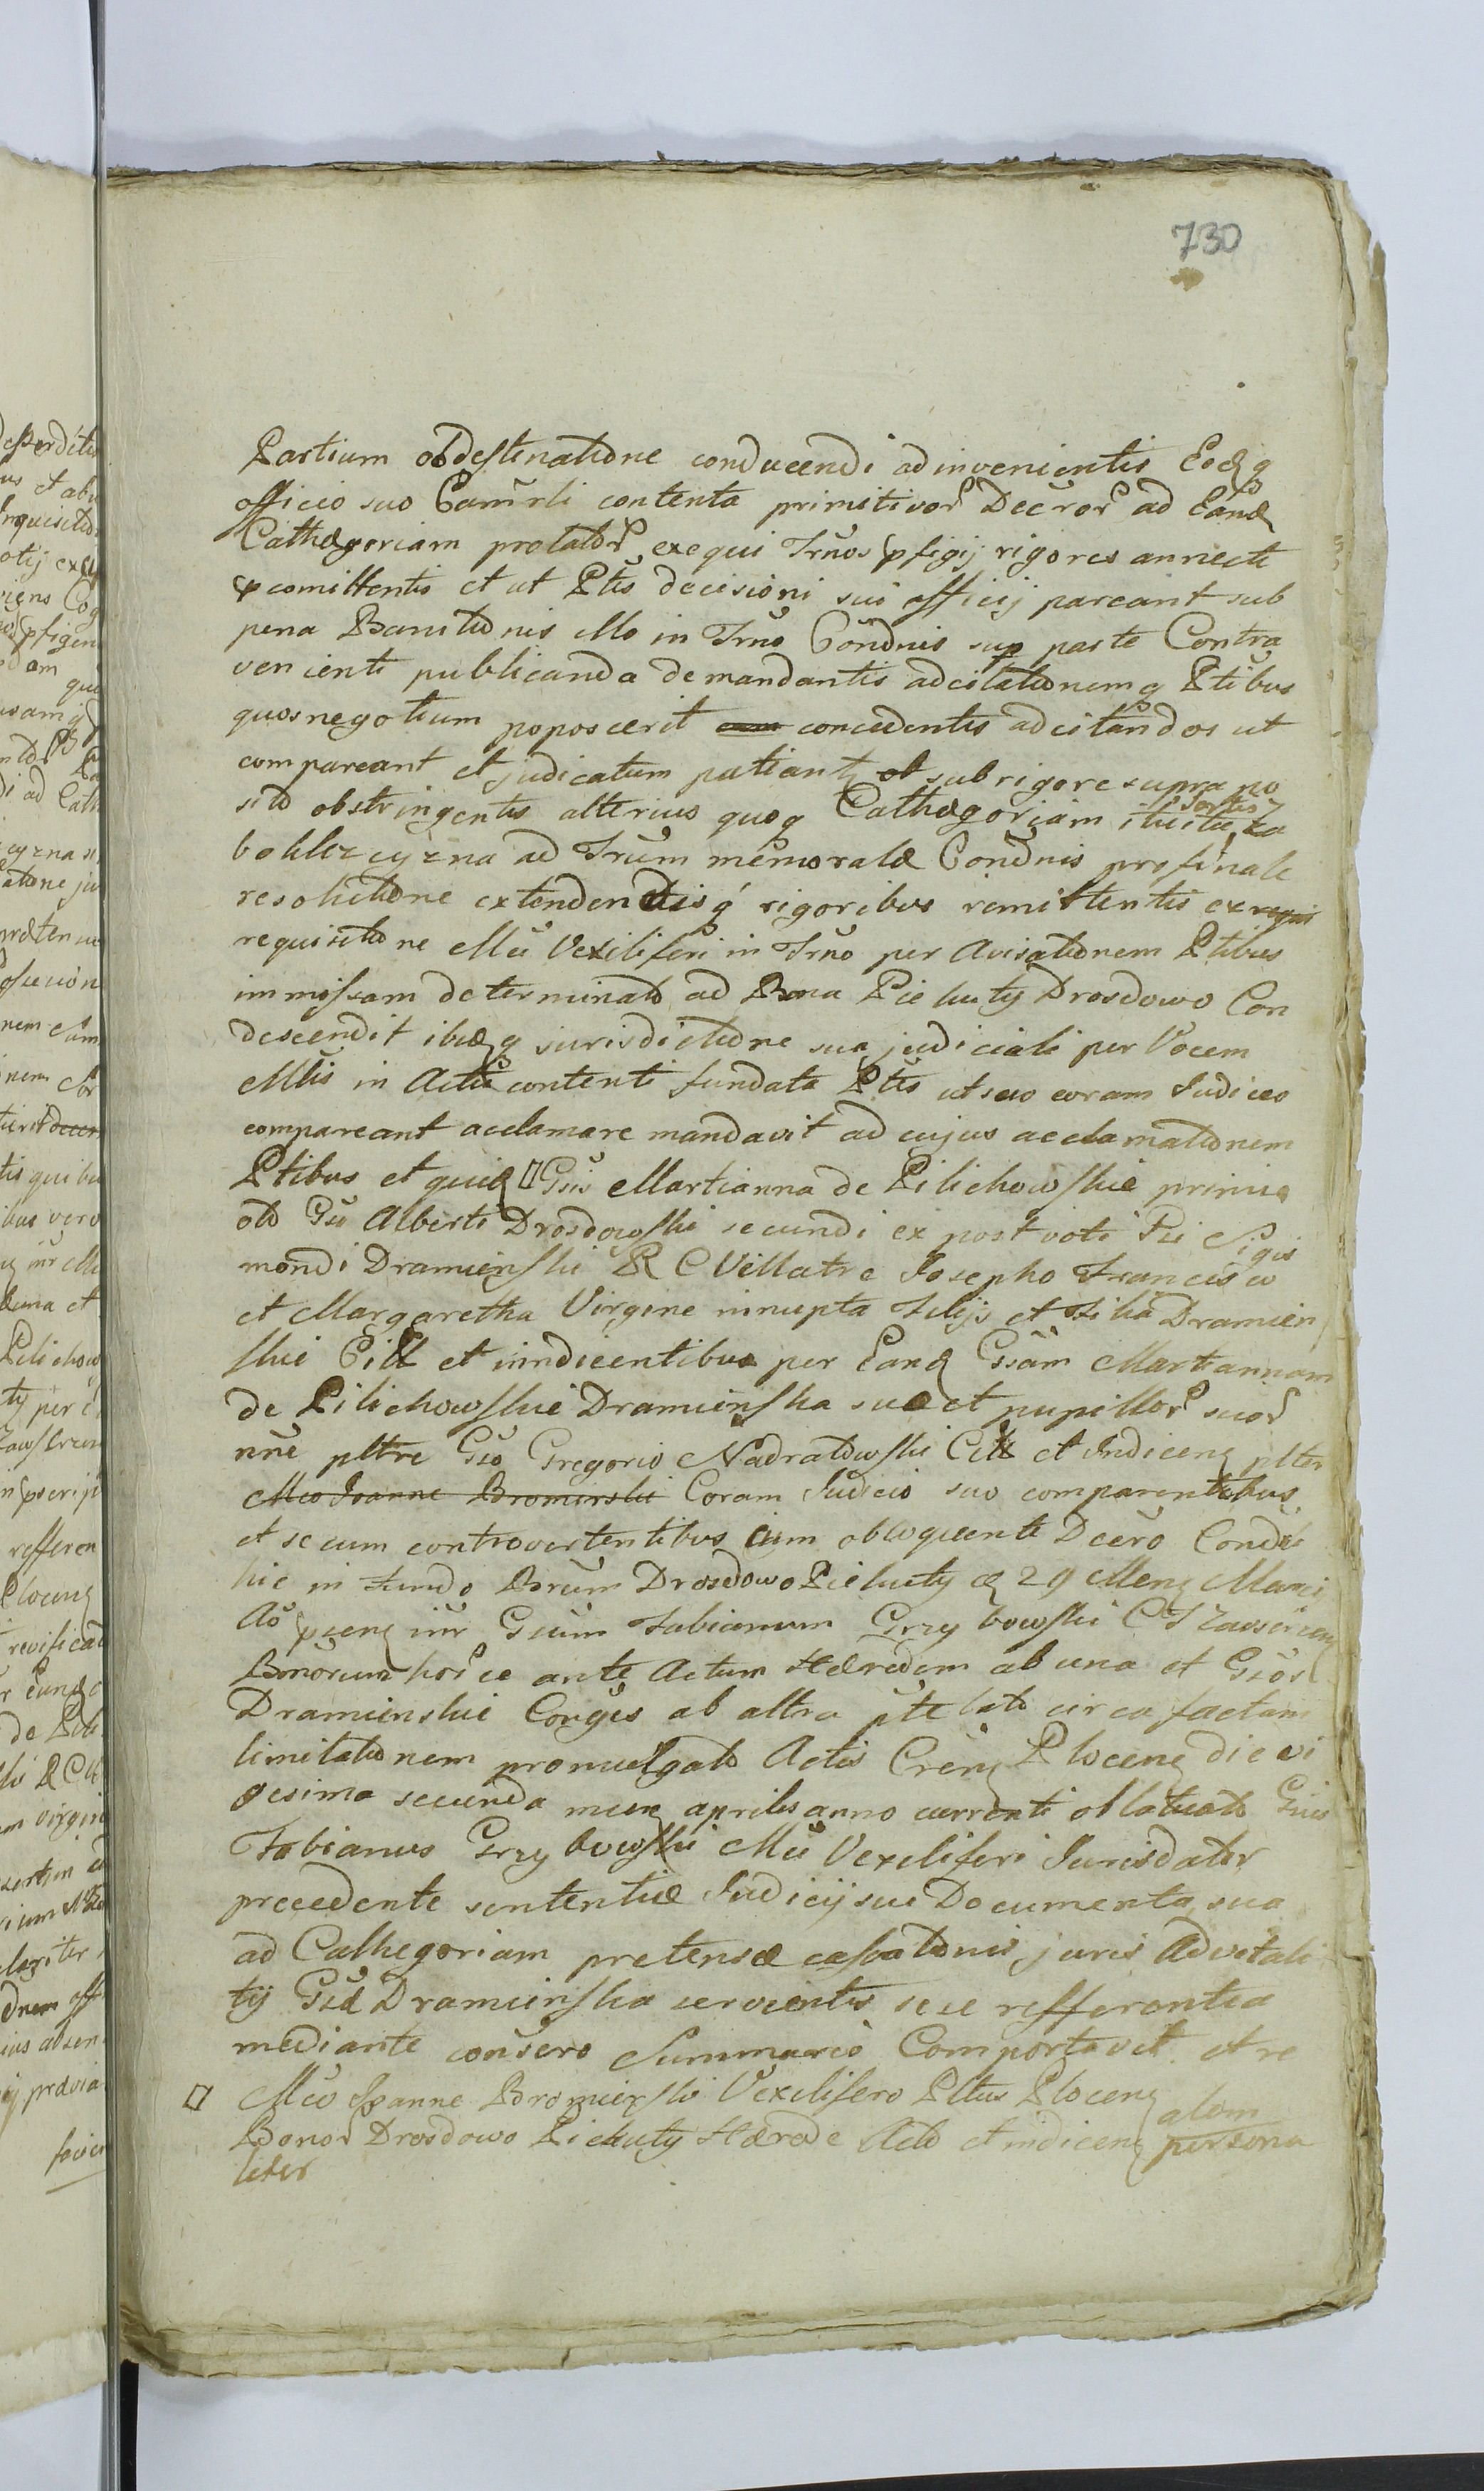 730
Partium ob destinatione conducendi adinvenientis Eodq
officio suo Camrli contenta primitivor Decror ad Eand
Cathegoriam prolator exequi Trnos pfigij rigores annecti
comittentis et ut Ptis decisioni sui officij pareant sub
pena Banitionis illo in Trno Condnis sup parte Contra
venienti publicanda demandantis adcitationemq Ptibus
quos negotium poposcerit concedentis adcitandos ut
compareant et judicatum patiant sub rigore supra po
sito obstringentis alterius quoq Cathegoriam situs sortis Za
boklezcyzna ad Trum memorale Condnis pro finale
resolutione extendendisq rigoribus remittentis ex requi
requisitione Mci Vexiliferi in Trno per Avisationem Ptibus
immissam determinato ad Bona Piekuty Drosdowo Con
descendit ibidq jurisdictione sua judiciali per Vocem
Mlis in Actu contenti fundata Ptes ut suo coram Judicio
compareant acclamare mandavit ad cujus acclamationem
Ptibus et quid Gsis Martianna de Pilichowskie primi
oto Gsi Alberti Drosdowski secundi ex post voti Gsi Sigis
mondi Dramienski R C Villatre Josepho Francisco
et Margaretha Virgine innupta Filijs et Filia Dramien
skie Citt et inndicentibus per Eand Gsam Martiannam
de Pilichowskie Dramienska sue et pupillor suor
nne pltre Gso Gregorio Nadratowski Citt et Indicen plter
Mco Joanne Bromirski Coram Judicio suo comparentibus
et secum controvertentibus cum obloquente Decro Condli
hic in Fundo Borum Drosdowo Piekuty d 29 Men Marci
Ao psen inr Gsum Fabianum Grzybowski C T Zawscren
Bonorum horce ante Actum Hæredem ab una et Gsos
Dramienskie Conges ab altra pte lato circa factam
limitationem promulgato Actis Cren Plocen die vi
gesima secunda mens aprilis anno currenti oblatato Gsus
Fabianus Grzybowski Mci Vexiliferi Jurisdator
precedente sententia Judicij sui Documenta sua
ad Cathegoriam pretensæ cassationis juris Advitali
tij Gsæ Dramienska servientis sese refferentia
mediante consero Summario Comportavit et re
Mco Joanne Bromierski Vexilifero Pltus Plocen
Bonor Drosdowo Piekuty Hærede Acto et indicen alom persona
liter